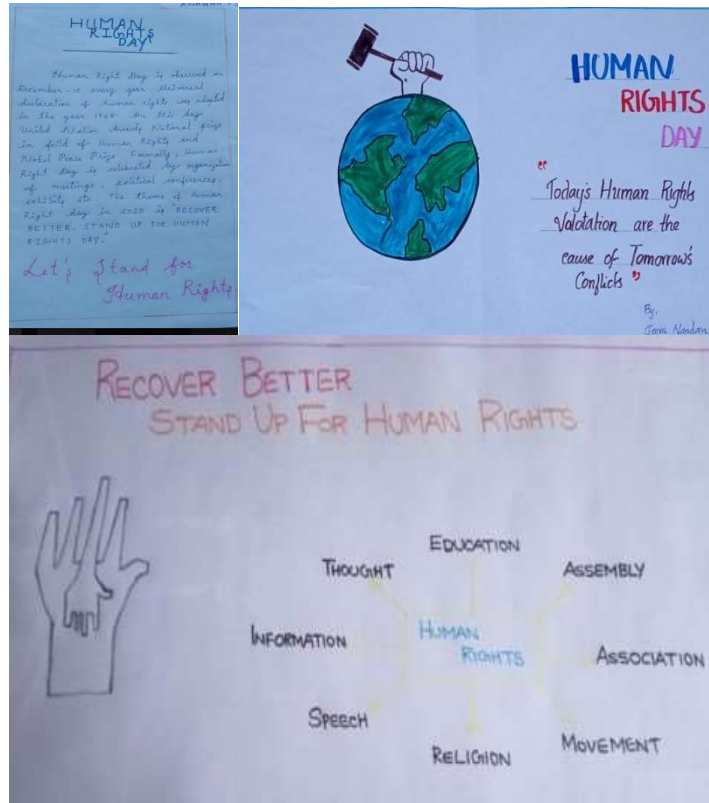 HUMAN
RIGHTS
DAY
Human Right Day is observed on
December 10 every year Universal
declaration of human rights was adopted
in the year 1948 On this day
United Nation Awards National prize
in field of Human Rights and
Nobel Peace Prize. Formally, Human
Right Day is celebrated by
of meetings, political conferences,
exhibits etc The theme of Human
Right day in 2020 is "RECOVER
BETTER. STAND UP FOR HUMAN
RIGHTS DAY."
Let's Stand for
Human Rights
HUMAN
RIGHTS
DAY
"Today's Human Rights
are the
cause of Tomorrow's
Conflicts"
By,
Jeeva Nandan
RECOVER BETTER
STAND UP FOR HUMAN RIGHTS
EDUCATION
THOUGHT
ASSEMBLY
INFORMATION
HUMAN
RIGHTS
ASSOCIATION
SPEECH
RELIGION
MOVEMENT